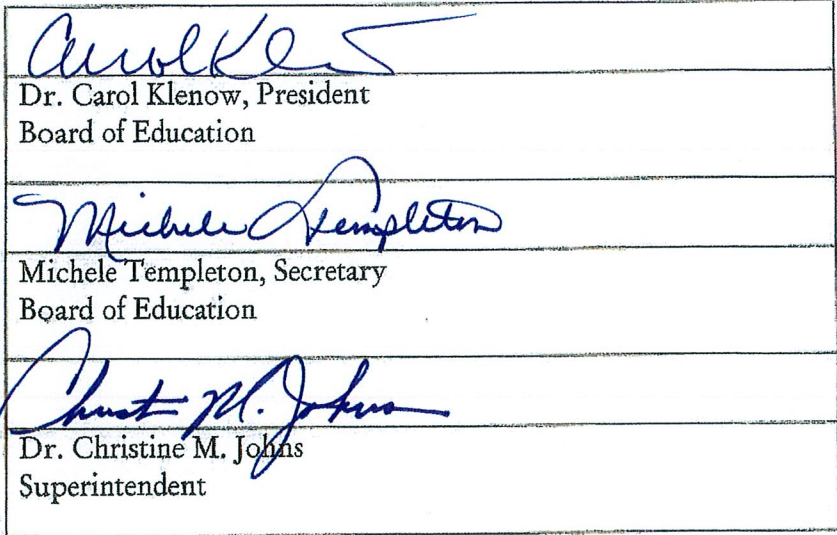 Carol Klenow
Dr. Carol Klenow, President
Board of Education
Michele Templeton
Michele Templeton, Secretary
Board of Education
Christine M. Johns
Dr. Christine M. Johns
Superintendent